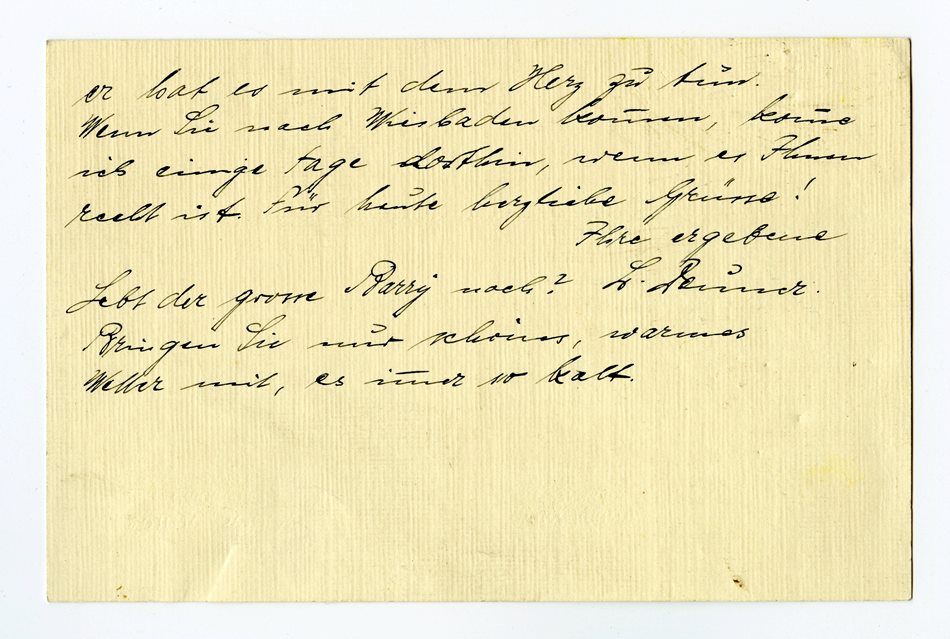 er hat es mit dem Herz zu tun.
Wenn Sie nach Wiesbaden kom̄en, kom̄e
ich einige tage dorthin, wenn es Ihnen
recht ist. Für heute herzliche Grüsse!
Ihre ergebene
Lebt der grosse Barry noch? L.
Bringen Sie nur schönes, warmes
Wetter mit, es im̄er so kalt.